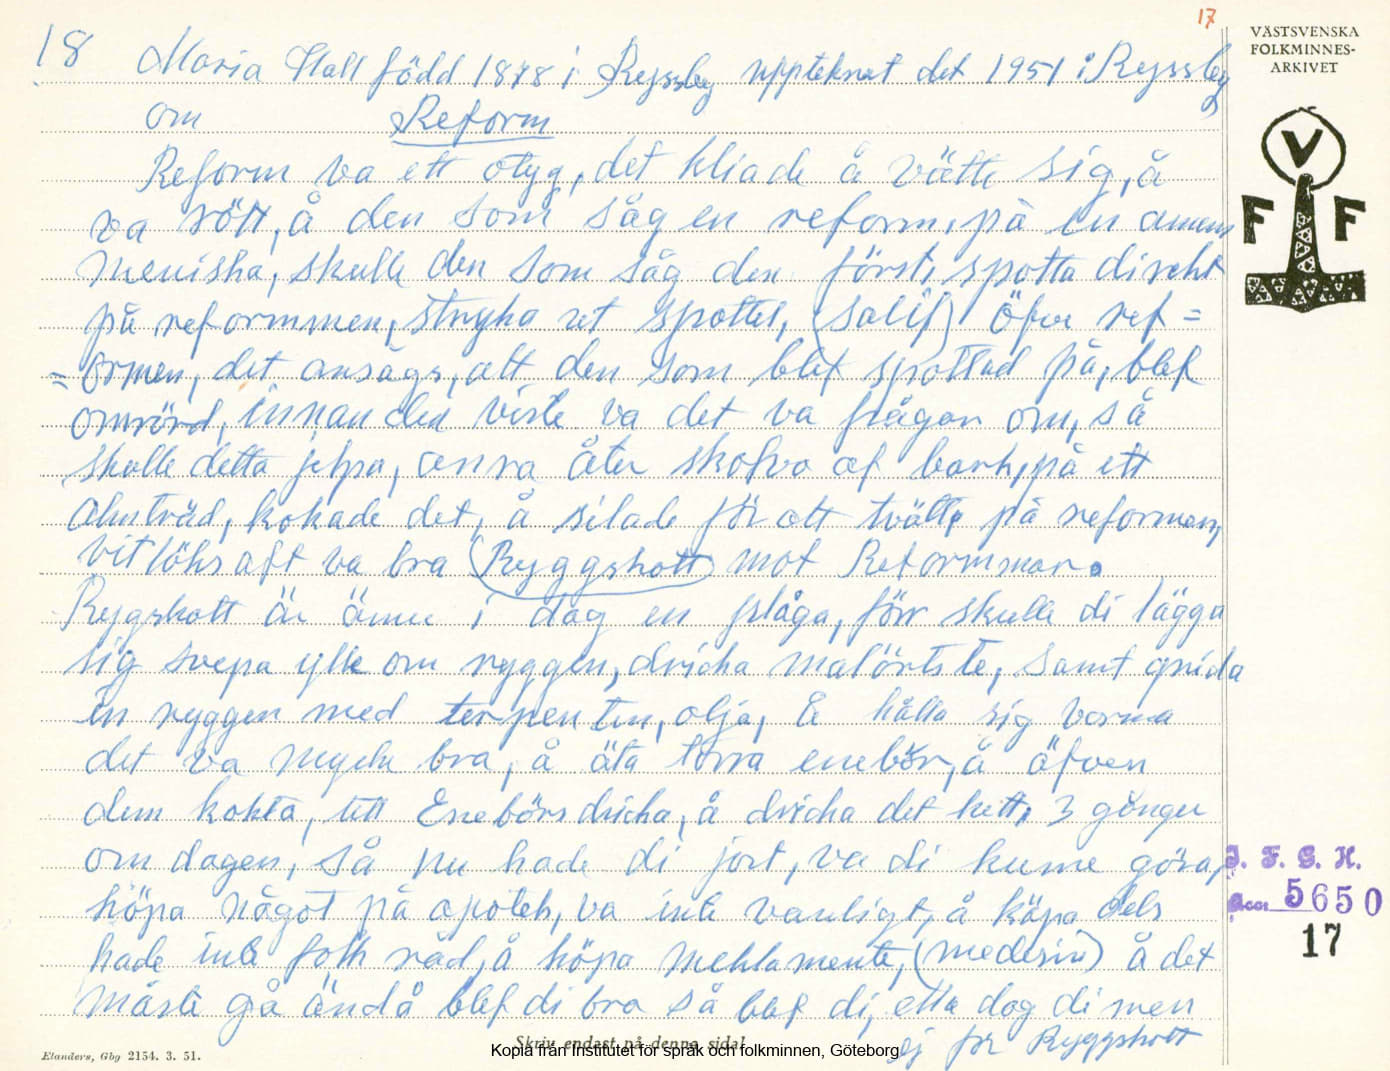 17
VÄSTSVENSKA
FOLKMINNES-
ARKIVET
V
F F
18 Maria Hall född 1878 i Ryssby upptecknat det 1951 i Ryssby
om Reform
Reform va ett otyg, det kliade å vätte sig, å
va rött, å den som såg en reform, på en annan
meniska, skulle den som såg den först, spotta direkt
på reformmen, stryka ut spottet, (salif) öfver ref =
= ormen, det ansågs, att den som blef spottad på, blef
omrörd, innan den viste va det va frågan om, så
skulle detta jelpa, anra åter skafva af bark, på ett
almträd, kokade det, å silade för att tvätte på reformen,
vitlöksaft va bra (Ryggskott) mot Reformmar.
Rygskott är ännu i dag en plåga, förr skulle di lägga
sig svepa ylle om ryggen, dricka malörtste, samt gnida
in ryggen med terpentin, olja, & hålla sig varma
det va mycke bra, å äta torra enebär, å äfven
dem kokta, till Enebärsdricka, å dricka det hett, 3 gånger
om dagen, så nu hade di jort, va di kunne göra,
köpa något på apotek, va inte vanligt, å köpa dels
hade inte folk råd, å köpa mehlamente, (medesin) å det
måste gå ändå blef di bra så blef di, ella dog di men
ej för Ryggskott
J. F. G. H.
Acc. 5650
17
Elanders, Gbg 2154. 3. 51.
Skriv endast på denna sida!
Kopia från Institutet för språk och folkminnen, Göteborg